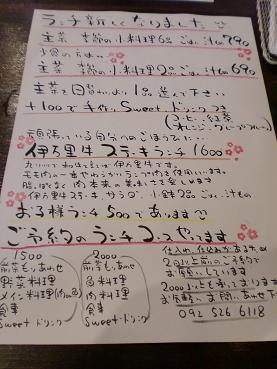 ランチ新しくなりました
主菜 季節の小料理6品 ごはん 汁もの 790
小食の方は、、
主菜 季節の小料理2品 ごはん 汁もの 690
主菜を日替わりより1品選んで下さい
+100で手作りSweet、ドリンクつき
(コーヒー、紅茶
オレンジ、グレープフルーツ)
頑張っている自分へのごほうびに…
伊万里牛ステーキランチ1600
伊万里牛です。
モモ肉の一番やわらかいランプ肉を使用しています。
伊万里牛ステーキ、サラダ、小鉢2品、ごはん、汁もの
お子様ランチ500であります
ご予約のランチコースやってます
1500
前菜もりあわせ
野菜料理
メイン料理(肉or魚)
食事
Sweet ドリンク
2000
前菜もりあわせ
魚料理
肉料理
食事
Sweet ドリンク
仕入れ、仕込みがあるため
2日以上前のご予約で
お願いしています
2000以上も承っております
お気軽にお問い合わせ下さい
092 526 6118